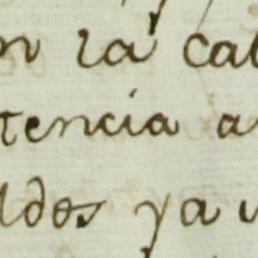 n la cal
tencia a
ldes ya